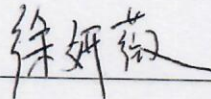 徐妍薇